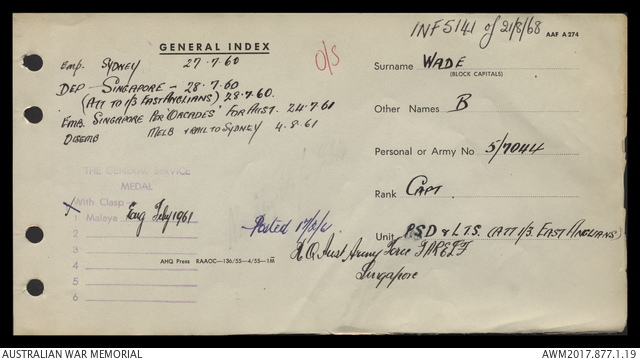 INF5141 of 21/8/68
AAF A274
GENERAL INDEX
O/S
Emp. SYDNEY 27.7.60
DEP - SINGAPORE - 28.7.60
(ATT TO 1/3 EAST ANGLIANS) 28.7.60.
EMB. SINGAPORE PER 'ORCADES' FOR AUST. 24.7.61
DISEMB MELB & RAIL TO SYDNEY 4.8.61
Surname WADE
(BLOCK CAPITALS)
Other Names B
Personal or Army No 5/7044
Rank CAPT
Unit PSD & LTS. (ATT 1/3 EAST ANGLIANS)
H.Q. Aust Army Force FARELF
Singapore
THE GENERAL SERVICE
MEDAL
With Clasp
X 1 Malaya Eng Feby 1961
2
3
4
5
6
Posted
AHQ Press RAAOC—136/55—4/55—1M
AUSTRALIAN WAR MEMORIAL
AWM2017.877.1.19